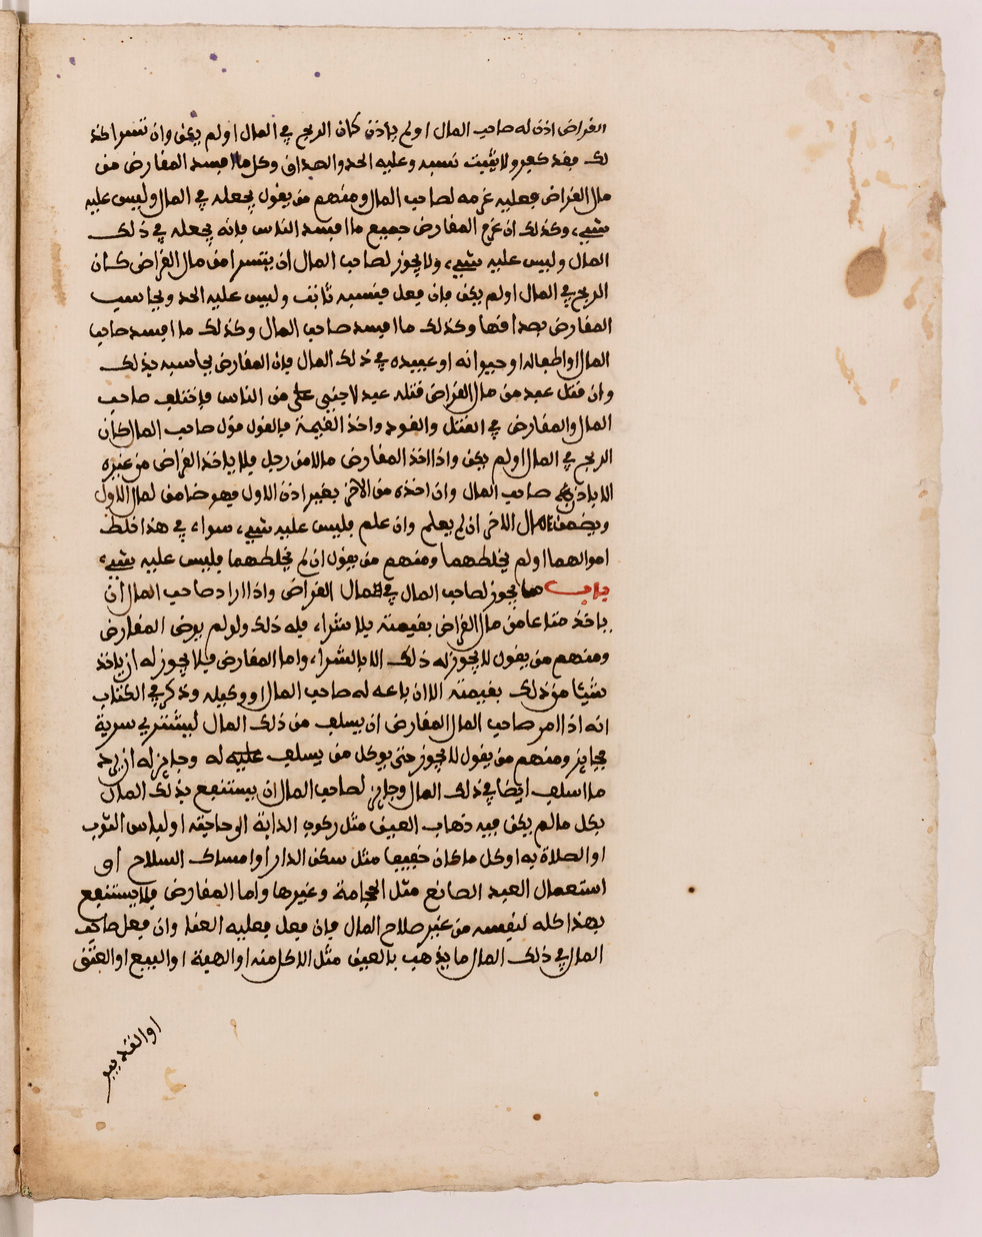 القراض اذن له صاحب المال او لم ياذن كان الربح في المال او لم يكن وان تسرا كذ
لك فقد كفر ولا يثبت نسبه وعليه الحد والصداق وكل ما افسد المقارض من
مال القراض فعليه غرمه لصاحب المال ومنهم من يقول يجعله في المال وليس عليه
شيء، وكذلك ان غرم المقارض جميع ما افسد الناس فإنه يجعله في ذلك
المال وليس عليه شيء، ولا يجوز لصاحب المال ان يتسرا من مال القراض كان
الربح في المال او لم يكن فإن فعل فنسبه ثابت وليس عليه الحد ويحاسب
المقارض بصداقها وكذلك ما افسد صاحب المال وكذلك ما افسد صاحب
المال او اطفاله او حيوانه او عبيده في ذلك المال فإن المقارض يحاسبه بذلك
وان قتل عبد من مال القراض قتله عبد لاجنبي من الناس فإختلف صاحب
المال والمقارض في القتل والقود واخذ القيمة فالقول قول صاحب المال كان
الربح في المال او لم يكن واذا اخذ المقارض مالا من رجل فلا ياخذ القراض من غيره
الا باذن صاحب المال وان اخذه من الآخر بغير اذن الاول فهو ضامن لمال الاول
ويضمن المال الاخر ان لم يعلم وان علم فليس عليه شيء، سواء في هذا خلط
اموالهما او لم يخلطهما ومنهم من يقول ان لم يخلطهما فليس عليه شيء،
باب ما يجوز لصاحب المال في مال القراض واذا اراد صاحب المال أن
ياخذ متاعا من مال القراض بقيمته بلا شراء، فله ذلك ولو لم يرض المقارض
ومنهم من يقول لا يجوز له ذلك الا بالشراء، واما المقارض فلا يجوز له ان ياخذ
شيئا من ذلك بقيمته الا ان باعه له صاحب المال او وكيله وذكر في الكتاب
انه اذا امر صاحب المال المقارض ان يسلف من ذلك المال ليشتري سرية
فجايز ومنهم من يقول لا يجوز حتى يوكل من يسلف عليه له وجايز له ان يرد
ما اسلف ايضا في ذلك المال وجايز لصاحب المال ان يستنفع بذلك المال
بكل ما لم يكن فيه ذهاب العين مثل ركوب الدابة الى حاجته او لباس الثوب
او الصلاة به او كل ما كان خفيفا مثل سكن الدار او امساك السلاح او
استعمال العبد الصانع مثل الحجامة وغيرها واما المقارض فلا يستنفع
بهذا كله لنفسه من غير صلاح المال فإن فعل فعليه العنا وان فعل صاحب
المال في ذلك المال ما يذهب بالعين مثل الاكل منه او الهبة او البيع او العتق
او التدبير